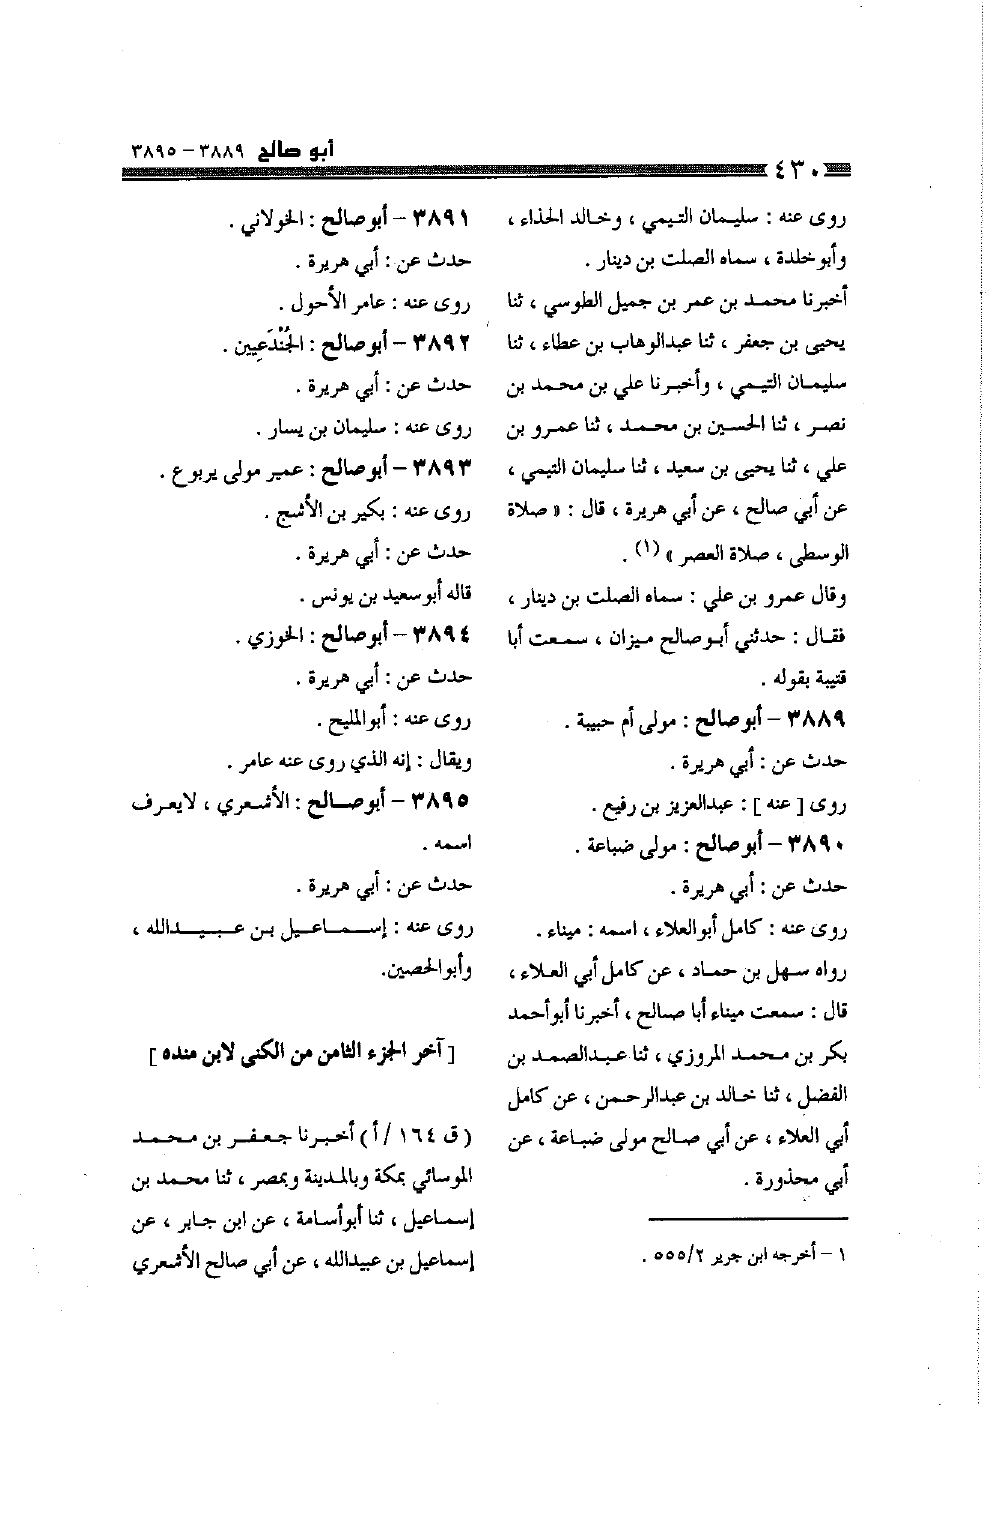 أبو صالح ٣٨٨٩ – ٣٨٩٥
٤٣٠
روى عنه : سليمان التيمي ، وخالد الحذاء ،
وأبو خلدة ، سماه الصلت بن دينار .
أخبرنا محمد بن عمر بن جميل الطوسي ، ثنا
يحيى بن جعفر ، ثنا عبدالوهاب بن عطاء ، ثنا
سليمان التيمي ، وأخبرنا علي بن محمد بن
نصر ، ثنا الحسين بن محمد ، ثنا عمرو بن
علي ، ثنا يحيى بن سعيد ، ثنا سليمان التيمي ،
عن أبي صالح ، عن أبي هريرة ، قال : « صلاة
الوسطى ، صلاة العصر » (١) .
وقال عمرو بن علي : سماه الصلت بن دينار ،
فقال : حدثني أبو صالح ميزان ، سمعت أبا
قتيبة بقوله .
٣٨٨٩ – أبو صالح : مولى أم حبيبة .
حدث عن : أبي هريرة .
روى [ عنه ] : عبدالعزيز بن رفيع .
٣٨٩٠ – أبو صالح : مولى ضباعة .
حدث عن : أبي هريرة .
روى عنه : كامل أبو العلاء ، اسمه : ميناء .
رواه سهل بن حماد ، عن كامل أبي العلاء ،
قال : سمعت ميناء أبا صالح ، أخبرنا أبو أحمد
بكر بن محمد المروزي ، ثنا عبدالصمد بن
الفضل ، ثنا خالد بن عبدالرحمن ، عن كامل
أبي العلاء ، عن أبي صالح مولى ضباعة ، عن
أبي محذورة .
١ – أخرجه ابن جرير ٢/ ٥٥٥ .
٣٨٩١ – أبو صالح : الخولاني .
حدث عن : أبي هريرة .
روى عنه : عامر الأحول .
٣٨٩٢ – أبو صالح : الجُنْدَعِيين .
حدث عن : أبي هريرة .
روى عنه : سليمان بن يسار .
٣٨٩٣ – أبو صالح : عمير مولى يربوع .
روى عنه : بكير بن الأشج .
حدث عن : أبي هريرة .
قاله أبو سعيد بن يونس .
٣٨٩٤ – أبو صالح : الخوزي .
حدث عن : أبي هريرة .
روى عنه : أبو المليح .
ويقال : إنه الذي روى عنه عامر .
٣٨٩٥ – أبو صالح : الأشعري ، لا يعرف
اسمه .
حدث عن : أبي هريرة .
روى عنه : إسماعيل بن عبيدالله ،
وأبو الحصين.
[ آخر الجزء الثامن من الكنى لابن منده ]
( ق ١٦٤ / أ ) أخبرنا جعفر بن محمد
الموسائي بمكة وبالمدينة وبمصر ، ثنا محمد بن
إسماعيل ، ثنا أبو أسامة ، عن ابن جابر ، عن
إسماعيل بن عبيدالله ، عن أبي صالح الأشعري